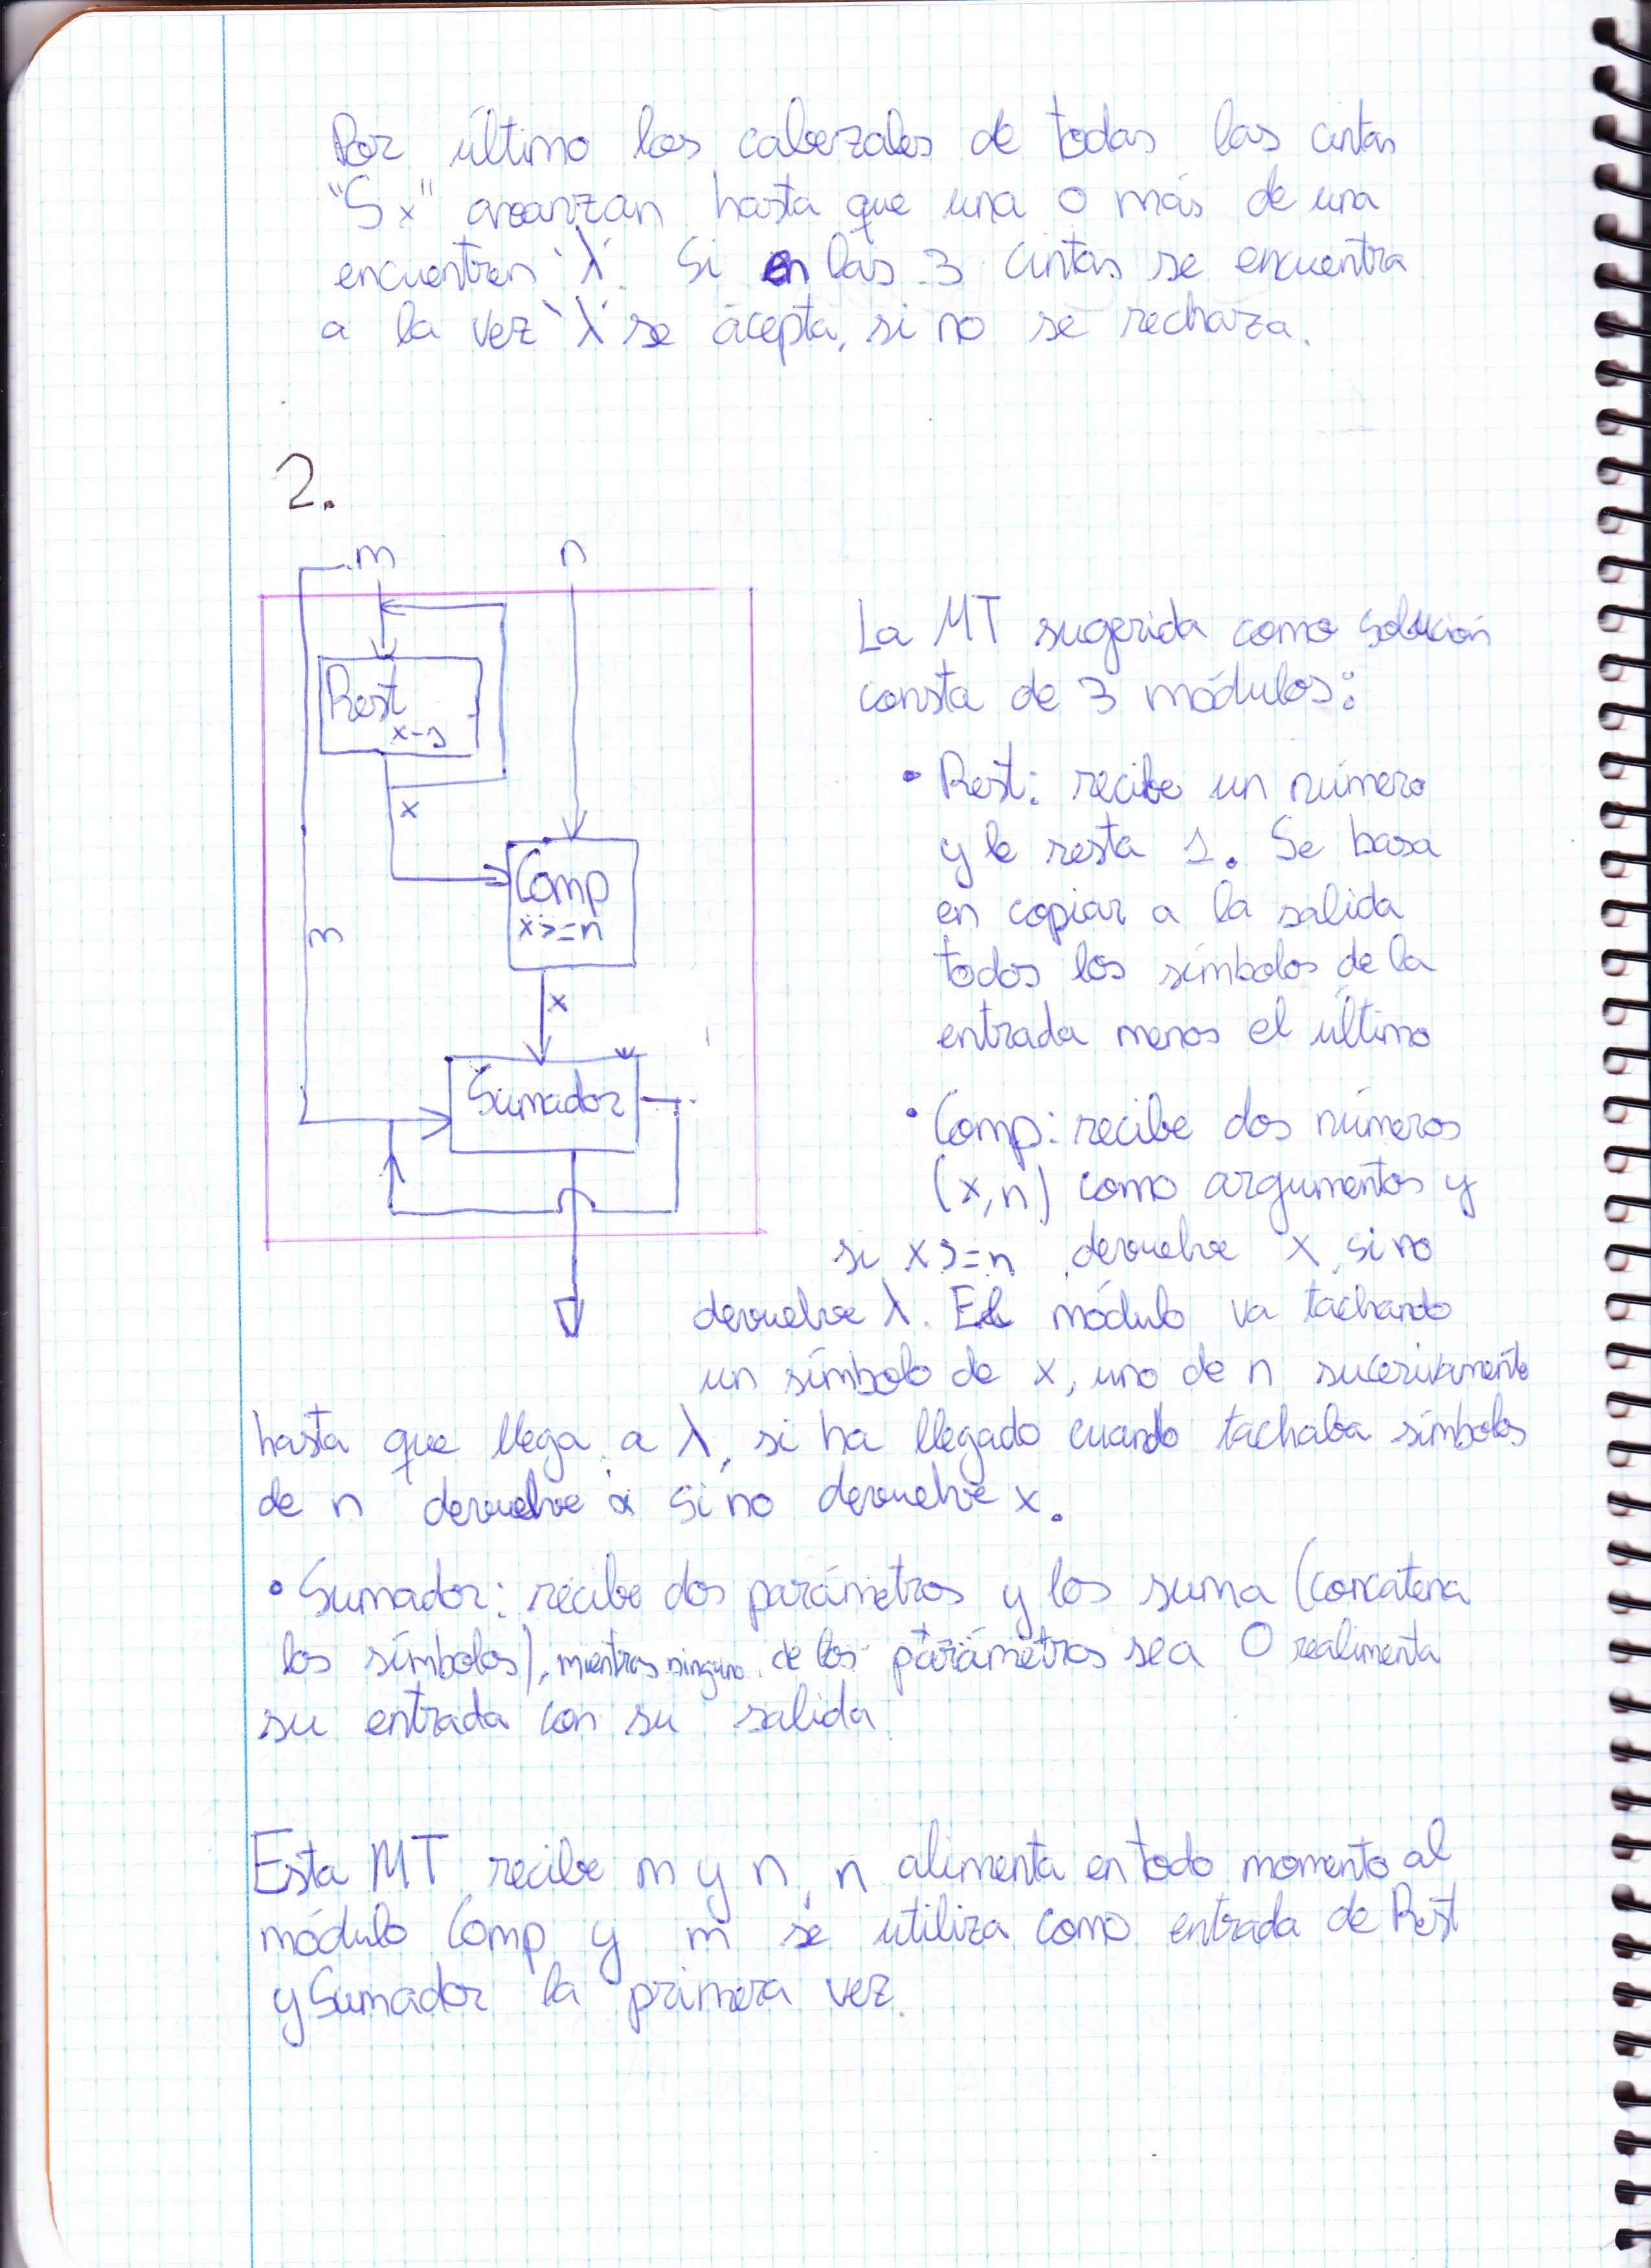 Por último los cabezales de todas las cintas
"Sx" avanzan hasta que una o más de una
encuentren 'λ'. Si en las 3 cintas se encuentra
a la vez 'λ' se acepta, si no se rechaza.
2.
m n
Rest
x-1
x
Comp
x>=n
m
x
Sumador
La MT sugerida como solución
consta de 3 módulos:
• Rest: recibe un número
y le resta 1. Se basa
en copiar a la salida
todos los símbolos de la
entrada menos el último
• Comp: recibe dos números
(x,n) como argumentos y
si x>=n devuelve x, si no
devuelve λ. El módulo va tachando
un símbolo de x, uno de n sucesivamente
hasta que llega a λ, si ha llegado cuando tachaba símbolos
de n devuelve x si no devuelve x.
• Sumador: recibe dos parámetros y los suma (concatena
los símbolos), mientras ninguno de los parámetros sea 0 realimenta
su entrada con su salida
Esta MT recibe m y n, n alimenta en todo momento al
módulo Comp y m se utiliza como entrada de Rest
y Sumador la primera vez.